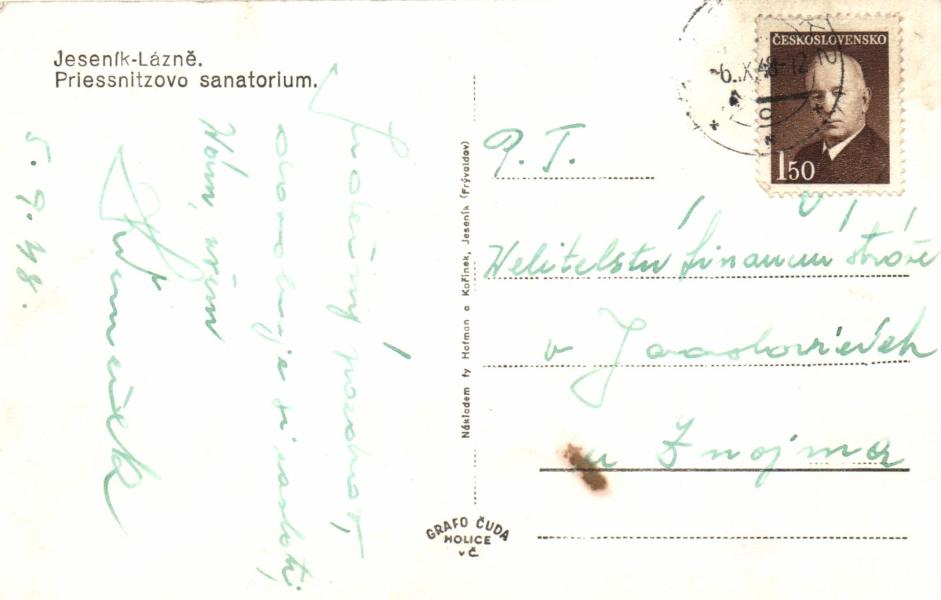 Jeseník-Lázně.
Priessnitzovo sanatorium.
Srdečný pozdrav,
Vám všem
5. 9. 48.
Nákladem fy Hofman a Kořínek, Jeseník (Frývaldov)
GRAFO ČUDA
HOLICE
v Č
ČESKOSLOVENSKO
-6.X.48-12
1 50
P. T.
Velitelství finanční stráže
v Jaroslavicích
u Znojma